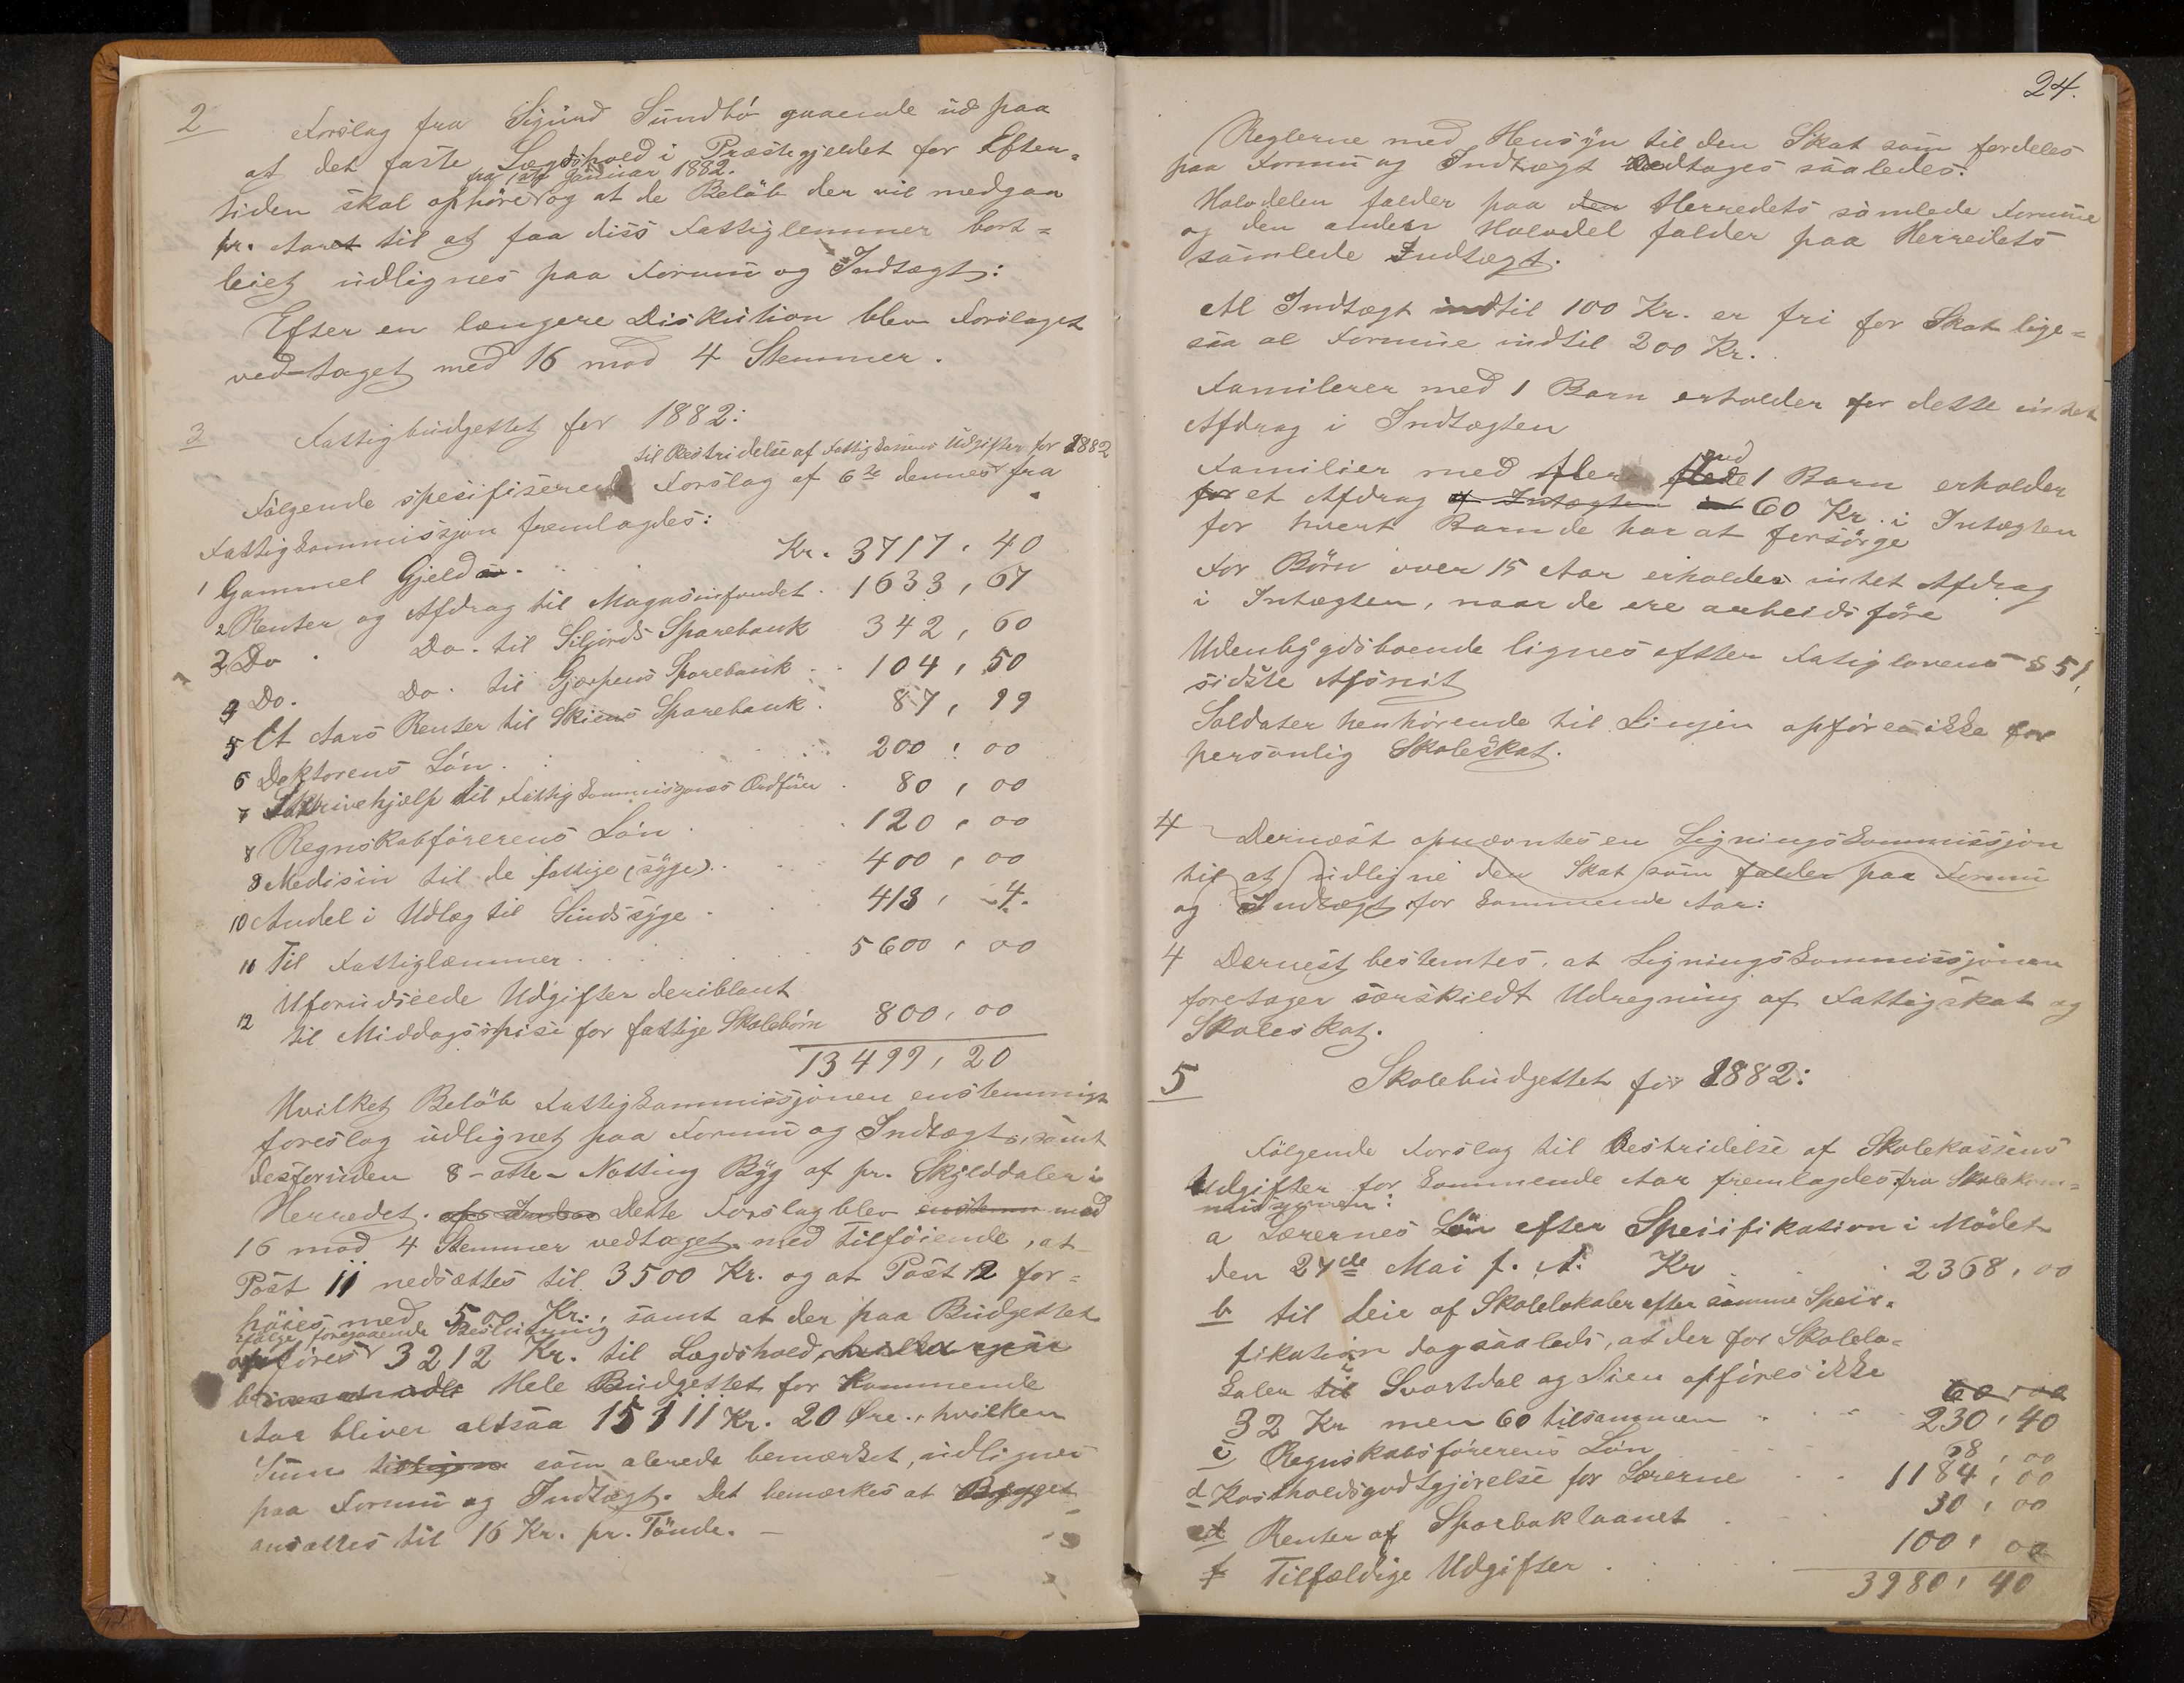 2 Forslag fra Sigurd Sundbö gaaende ud paa
at det faste Lægdshold i Præstegjeldet for Efter-
fra 1ste Januar 1882.
tiden skal ophöre og at de Belöb der vil medgaa
pr. Aaret til at faa diss Fattiglemmer bort=
leiet udlignes paa Formu og Indtægt:
Efter en længere Diskution blev Forslaget
vedtaget med 16 mod 4 Stemmer.
3 Fattigbudgettet for 1882:
til Bestridelse af Fattigkassens Udgifter for 1882
Fölgende spesifiserede Forslag af 6te dennes fra
Fattigkommissjon fremlagdes:
1 Gammel Gjeld . Kr. 3717, 40
2 Renter og Afdrag til Magasinfondet . 1633, 67
3 Do . Do. til Siljords Sparebank 342, 60
4 Do. Do. til Gjerpens Sparebank . . 104, 50
5 Et Aars Renter til Skiens Sparebank . 87, 99
6 Doktorens Lön . 200, 00
7 Skrivehjælp til Fattigkommisjonens Ordförer . 80, 00
8 Regnskabförerens Lön . 120, 00
9 Medisin til de fattige (syge) . 400, 00
10 Andel i Udlæg til Sindssyge . 413, 4.
11 Til Fattiglæmmer . 5600, 00
12 Uforudseede Udgifter deriblant
til Middagsspise for fattige Skolebörn 800, 00
13499, 20
Hvilket Belöb Fattigkommissjonen enstemmigt
foreslog udlignet paa Formu og Indtægt, samt
desforuden 8 - otte - Notting Byg af pr. Skylddaler i
Herredet. Dette Forslag blev enstemm med
16 mod 4 Stemmer vedtaget med Tilföiende, at
Post 11 nedsættes til 3500 Kr. og at Post 12 for=
höies med 500 Kr., samt at der paa Budgettet
ifölge foregaaende Beslutning
opföres 3212 Kr. til Lægdshold,
Hele Budgettet for Kommende
Aar bliver altsaa 15111 Kr. 20 Öre., hvilken
Sum som alerede bemærket, udlignes
paa Formu og Indtægt. Det bemærkes at Bygget
ansættes til 16 Kr. pr. Tönde. -
24.
Reglerne med Hensyn til den Skat som fordeles
paa Formu og Indtægt vedtoges saaledes:
Halvdelen falder paa den Herredets samlede Formue
og den anden Halvdel falder paa Herredets
samlede Indtægt.
Al Indtægt indtil 100 Kr. er fri for Skat lige=
saa al Formue indtil 200 Kr.
Familerer med 1 Barn erholder for dette intet
Afdrag i Indtægten
Familier med flere end 1 Barn erholder
for et Afdrag af Intægten 60 Kr. i Intægten
for hvert Barn de har at forsörge
For Börn over 15 Aar erholdes intet Afdrag
i Intægten, naar de ere arbeidsföre
Udenbygdsboende lignes efter Fatiglovens § 51,
sidste Afsnit
Soldater henhörende til Linjen opföres ikke for
personlig Skoleskat.
4 Dernæst opnævntes en Ligningskommissjon
til at udligne den Skat som falder paa Formu
og Indtægt for kommende Aar:
4 Dernest bestemtes, at Ligningskommissjonen
foretager særskildt Udregning af Fattigskat og
Skoleskat.
5 Skolebudgettet for 1882:
Fölgende Forslag til Bestridelse af Skolekassens
Udgifter for kommende Aar fremlagdes fra Skolekom=
misjonen:
a Lærernes Lön efter Spesifikation i Mödet
den 24de Mai f. A. Kr . . 2368, 00
b til Leie af Skolelokaler efter samme Spesi-
fikation dog saaleds, at der for Skolelo=
kaler i Svartdal og Lien opföres ikke 60, 00
32 Kr men 60 tilsammen . . 230, 40
c Regnskabsförerens Lön 68, 00
d Kostholdsgodtgjörelse for Lærerne . . 1184, 00
e Renter af Sparbaklaanet . 30, 00
f Tilfældige Udgifter . 100, 00
3980, 40